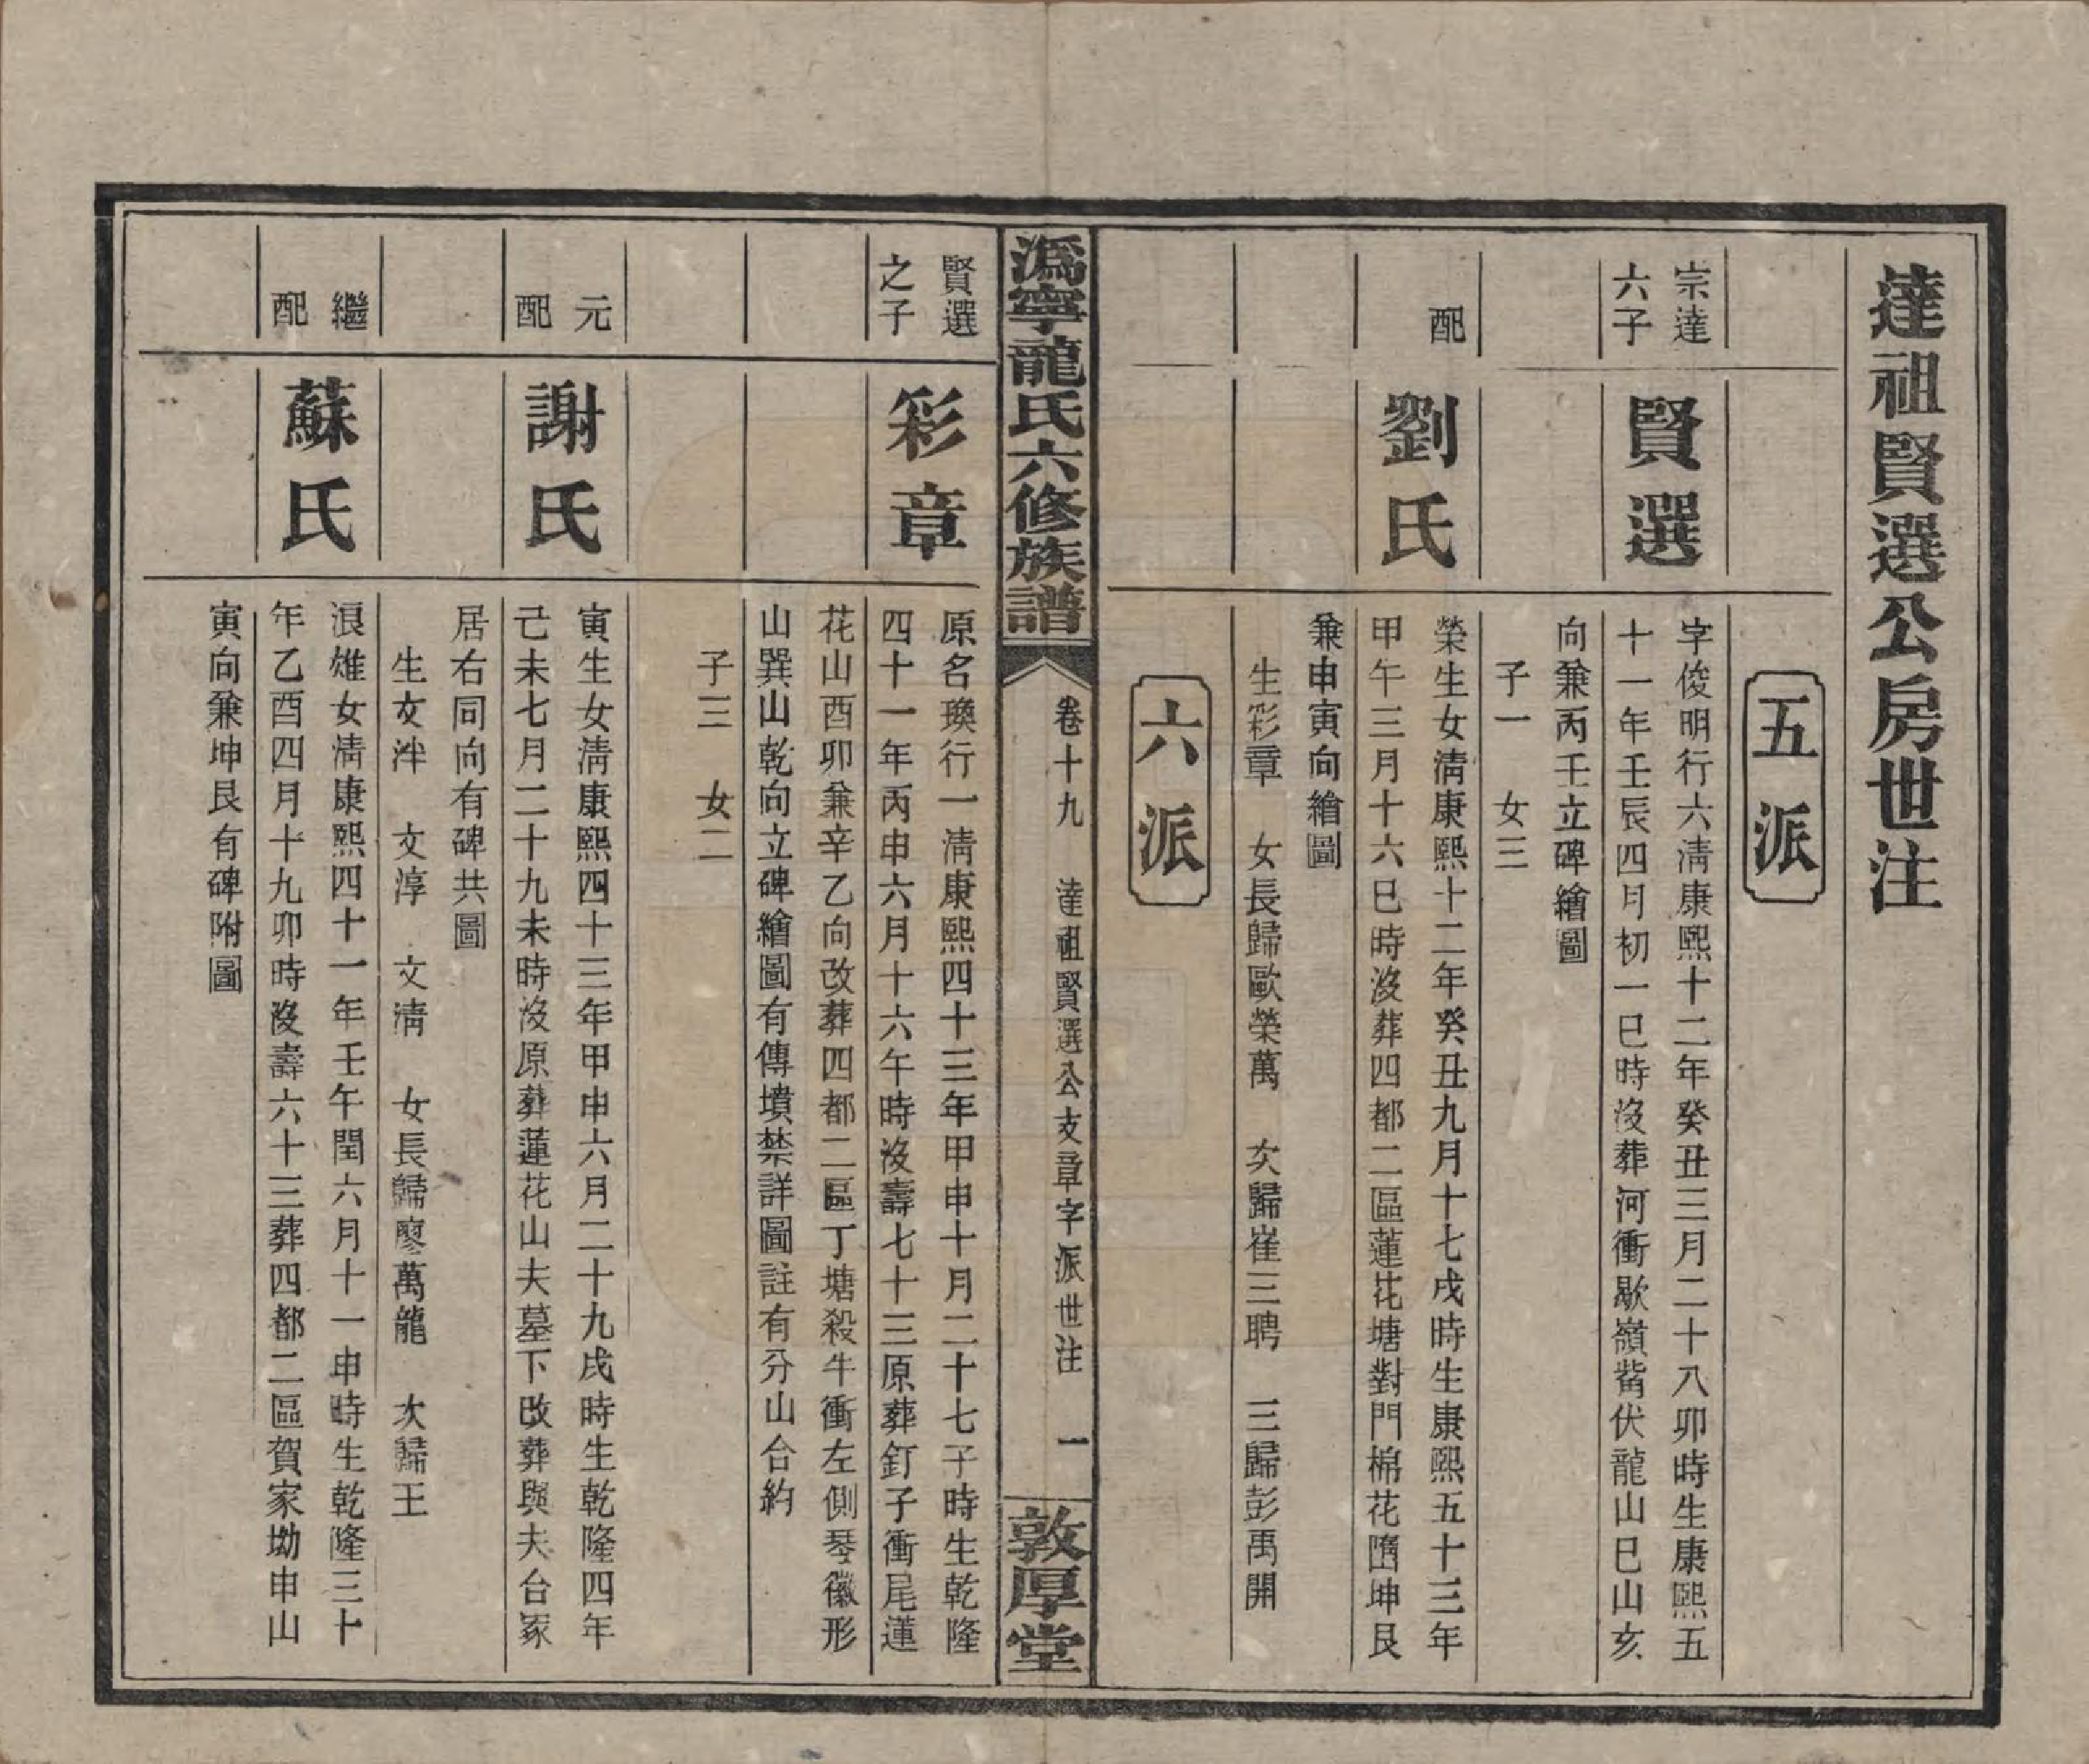 達祖賢選公房世注
五派
宗達
六子
賢選
字俊明行六淸康熙十二年癸丑三月二十八卯時生康熙五
十一年壬辰四月初一巳時沒葬河衝歇嶺觜伏龍山巳山亥
向兼丙壬立碑繪圖
子一　女三
配
劉氏
榮生女淸康熙十二年癸丑九月十七戌時生康熙五十三年
甲午三月十六巳時沒葬四都二區蓮花塘對門棉花坤艮
兼申寅向繪圖
生彩章　女長歸歐榮萬　次歸崔三聘　三歸彭禹開
六派
潙寧龍氏六修族譜
卷十九　達祖賢選公支章字派世注　一
敦厚堂
賢選
之子
彩章
原名瑍行一淸康熙四十三年甲申十月二十七子時生乾隆
四十一年丙申六月十六午時沒壽七十三原葬釘子衝尾蓮
花山酉卯兼辛乙向改葬四都二區丁塘殺牛衝左側琴徽形
山巽山乾向立碑繪圖有傳墳禁詳圖註有分山合約
子三　女二
元
配
謝氏
寅生女淸康熙四十三年甲申六月二十九戌時生乾隆四年
己未七月二十九未時沒原葬蓮花山夫墓下改葬與夫合冢
居右同向有碑共圖
生文泮　文淳　文淸　女長歸廖萬龍　次歸王
繼
配
蘇氏
浪雄女淸康熙四十一年壬午閏六月十一申時生乾隆三十
年乙酉四月十九卯時沒壽六十三葬四都二區賀家坳申山
寅向兼坤艮有碑附圖